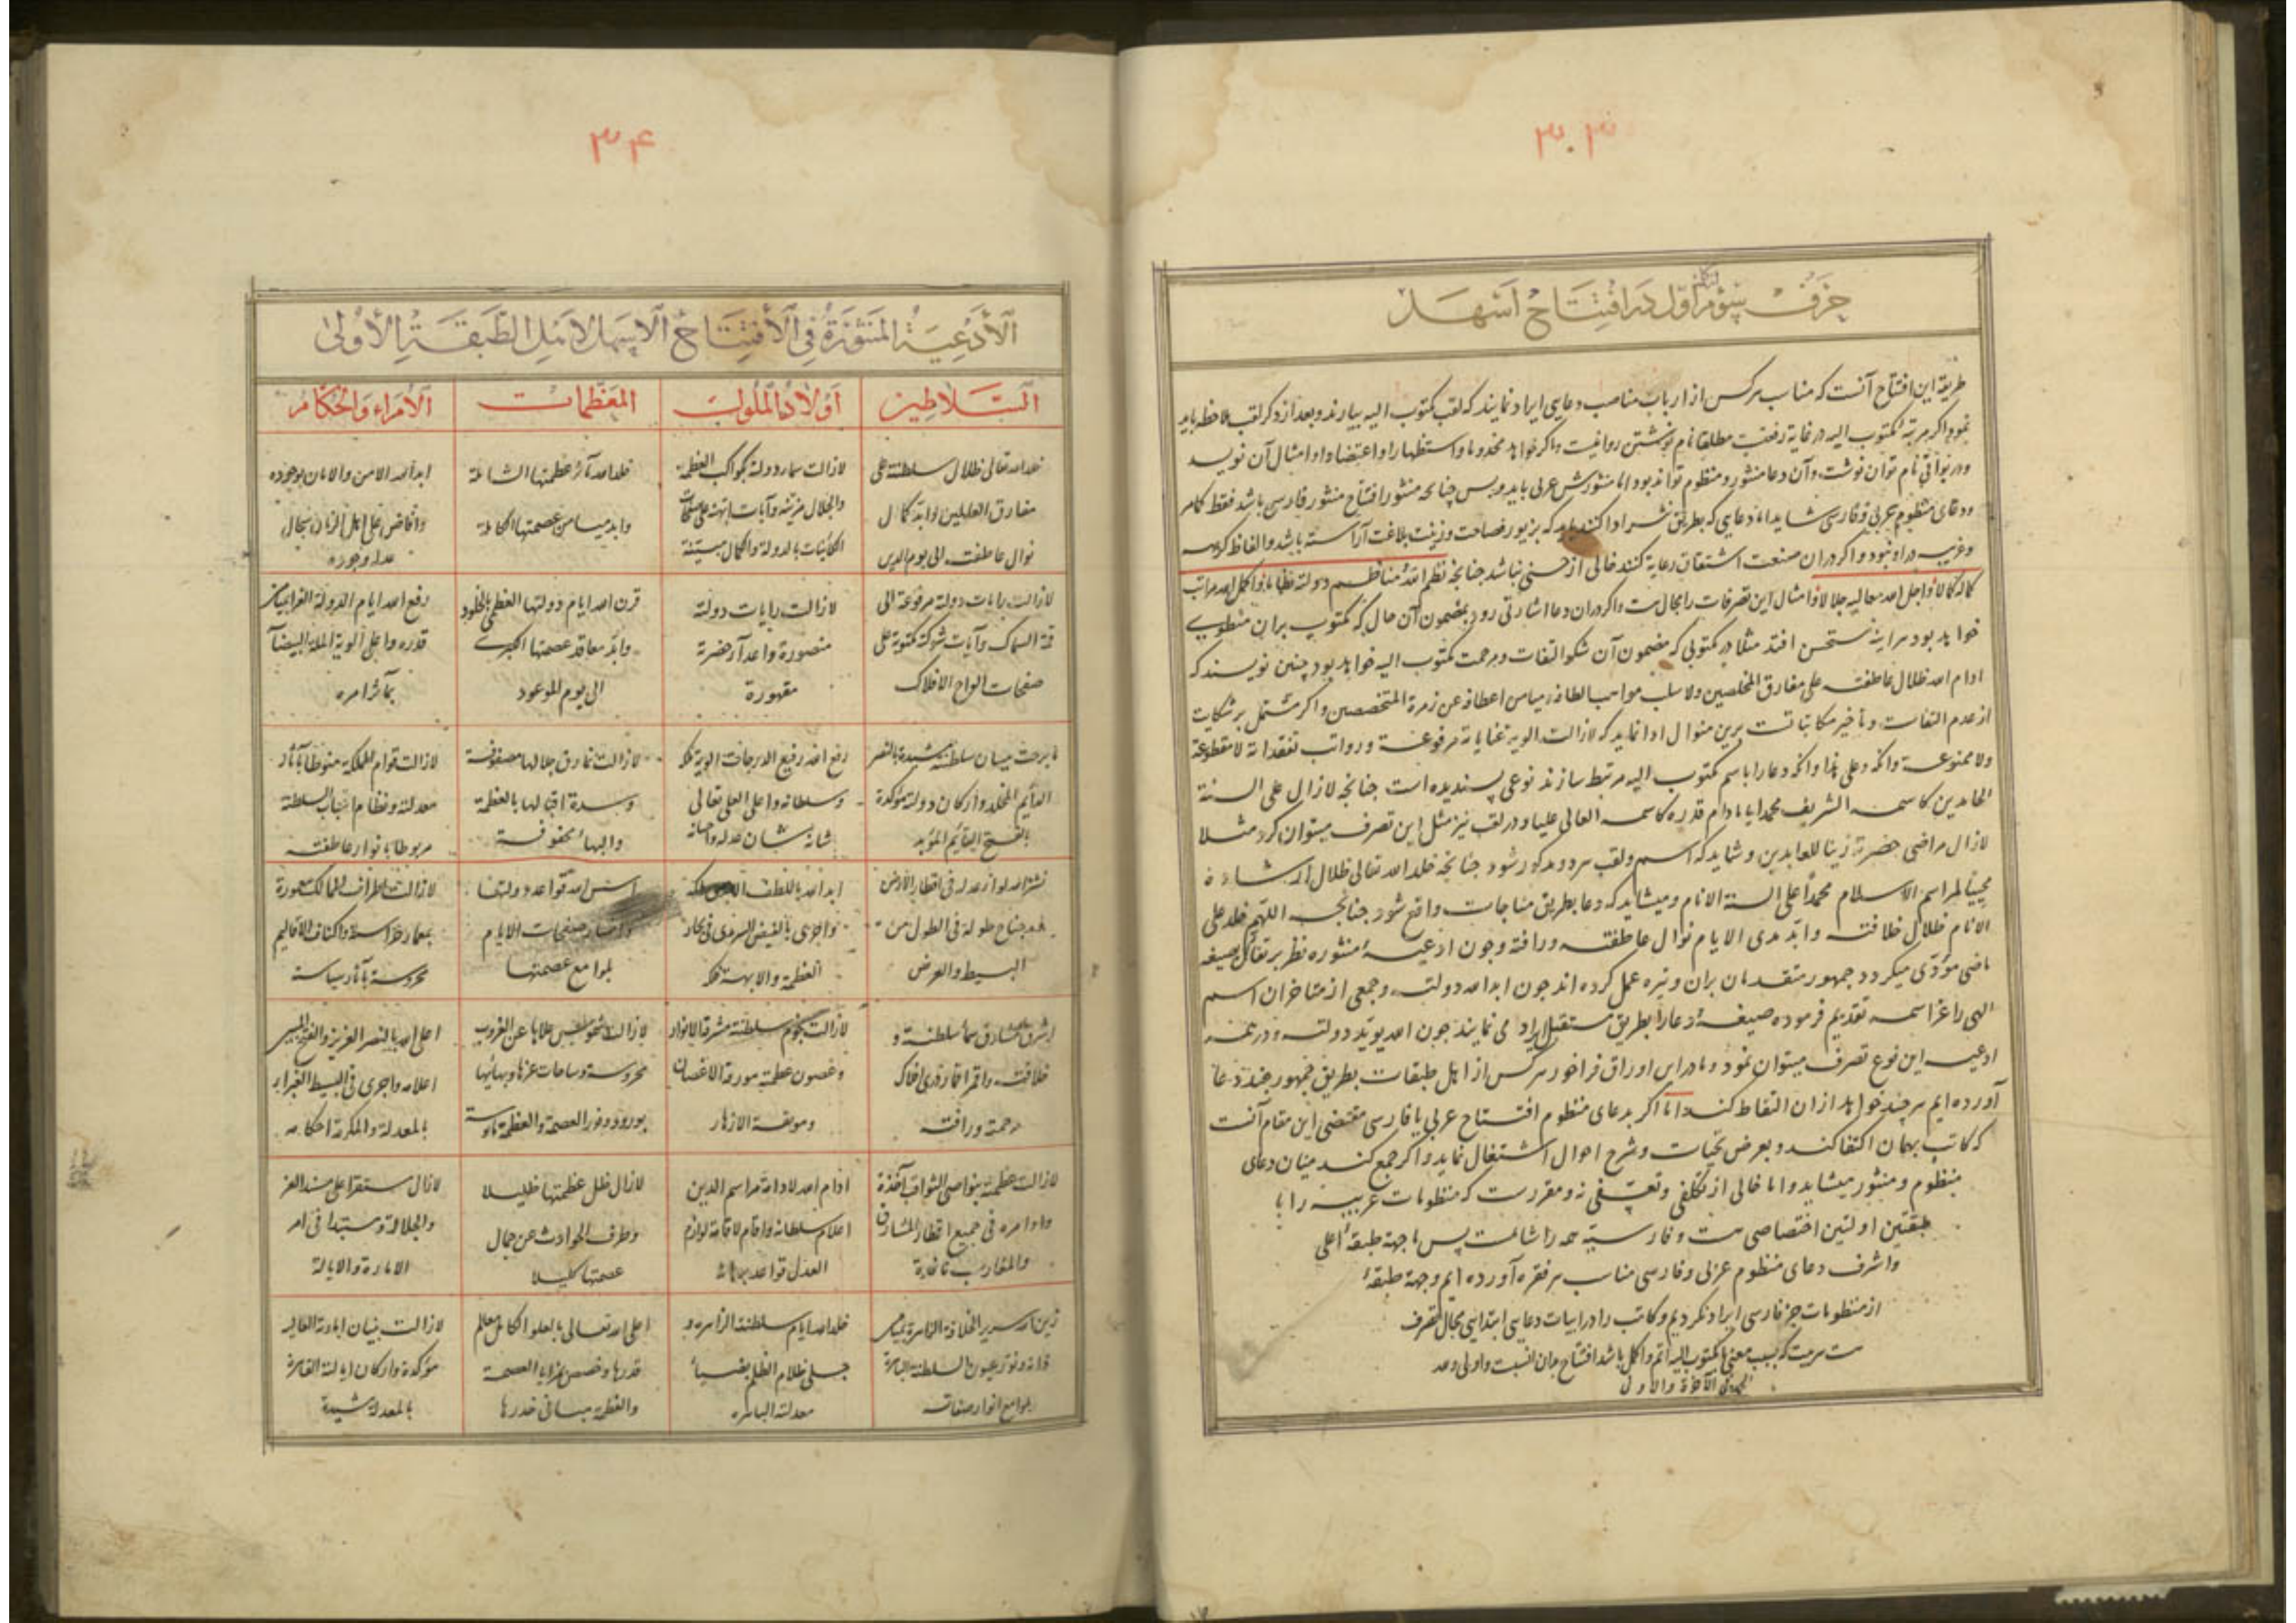 ۳۰۳
حرف سوم از اول در افتتاح اسهل
طریقه این افتتاح آنست که مناسب هرکس از ارباب مناصب دعایی ایراد نمایند که لقب مکتوب الیه بیارند و بعد از ذکر لقب ملاحظه باید
نمود اگر مرتبه مکتوب الیه در غایة رفعت مطلقا نام نوشتن روا نیست و اگر خواهد مخدوما و استظهارا و اعتضادا و امثال آن نویسد
و در بواقی نام توان نوشت و آن دعا منثور و منظوم تواند بود اما منثورش عربی باید و بس چنانچه منثور افتتاح منثور فارسی باشد فقط کامر
و دعای منظوم بعربی و فارسی شاید اما دعایی که بطریق نثر ادا کنند باید که بزیور فصاحت و زینت بلاغت آراسته باشد و الفاظ
و غریب در او نبود و اگر در آن صنعت اشتقاق رعایة کنند خالی از حسنی نباشد چنانچه نظم الله مناظم دولته نظاما و اکمل الله مراتب
کماله کمالا و اجل الله معالیه جلالا و امثال این تصرفات را مجال هست و اگر در آن دعا اشارتی رود بمضمون آن حال که مکتوب بران منطوی
خواهد بود هر آینه مستحسن افتد مثلا در مکتوبی که مضمون آن شکر التفات و مرحمت مکتوب الیه خواهد بود چنین نویسند که
ادام الله ظلال عاطفته علی مفارق المخلصین ولا سلب مواهب الطافه و میامن اعطافه عن زمرة المتخصصین و اگر مشتمل بر شکایت
از عدم التفات و تأخیر مکاتباتست برین منوال ادا نماید که لازالت الویة عنایاته مرفوعة و رواتب تفقداته لا مقطوعة
ولا ممنوعة و آنکه و علی هذا و آنکه دعا را با اسم مکتوب الیه مرتبط سازند نوعی پسندیده است چنانچه لازال علی السنة
الحامدین کاسمه الشریف محمدا یا مادام قدره کاسمه العالی علیا و در لقب نیز مثل این تصرف میتوان کرد مثلا
لازال مراضی حضرته زینا للعابدین و شاید که اسم و لقب هر دو مذکور شود چنانچه خلد الله تعالی ظلال ارشاده
محییا لمراسم الاسلام محمدا علی السنة الانام و میشاید که دعا بطریق مناجات واقع شود چنانچه اللهم خلد علی
الانام ظلال خلافته و ابد مدی الایام نوال عاطفته و رافته و چون ادعیه منثوره نظر بر تفاؤل بصیغه
ماضی مؤدی میگردد جمهور متقدمان بران وتیره عمل کرده اند چون ابد الله دولته و جمعی از متاخران اسم
الهی را عز اسمه تقدیم فرموده صیغه دعا را بطریق مستقبل ایراد می نمایند چون الله یؤید دولته و در همه
ادعیه این نوع تصرف میتوان نمود و ما در این اوراق فراخور هرکس از اهل طبقات بطریق جمهور چند دعا
آورده ایم هر چند خواهد از ان التقاط کند و اما اگر بدعای منظوم افتتاح عربی یا فارسی مقتضی این مقام آنست
که کاتب بهمان اکتفا کند و بعرض تحیات و شرح احوال اشتغال نماید و اگر جمع کند میان دعای
منظوم و منثور میشاید و اما خالی از تکلفی و تعسفی نه و مقررست که منظومات عربیه را با
طبقتین اولتین اختصاصی هست و فارسیة همه را شاملست پس ما جهة طبقه اعلی
و اشرف دعای منظوم عربی و فارسی مناسب هر فقره آورده ایم و جهة طبقه
از منظومات جز فارسی ایراد نکردیم و کاتب را در ابیات دعایی ابتدایی مجال تصرف
هست هر بیت که بحسب معنی بمکتوب الیه اتم و اکمل باشد افتتاح بدان انسب و اولی و الله
الآخرة والاولی
۳۴
الأدعیة المنثورة فی الأفتتاح الاسهل لاهل الطبقة الأولی
السلاطین
اولاد الملوک
المعظمات
الأمراء والحکام
خلد الله تعالی ظلال سلطنته علی
مفارق العالمین و ابد کمال
نوال عاطفته الی یوم الدین
لازالت سماء دولته بکواکب العظمة
والجلال مزینة وآیات ابهته علی صفحات
الکائنات بالدولة والکمال مبینة
خلد الله مآثر عظمتها الشاملة
وابد میامن عصمتها الکاملة
ابد الله الامن والامان بوجوده
وافاض علی اهل الزمان سجال
عدله وجوده
لازالت رایات دولته مرفوعة الی
قمة السماک وآیات شوکته مکتوبة علی
صفحات الواح الافلاک
لازالت رایات دولته
منصورة واعداء حضرته
مقهورة
قرن الله ایام دولتها العظمی بالخلود
وابد معاقد عصمتها الکبری
الی یوم الموعود
رفع الله ایام الدولة الغراء بمیامن
قدره واعلی الویة الملة البیضاء
بمآثر امره
ما برحت میسان سلطنته مشیدة بالنصر
الدایم المخلد وارکان دولته موکدة
بالفتح القایم المؤبد
رفع الله رفیع الدرجات الویة ملکه
وسلطانه واعلی العلی تعالی
شانه بنیان عدله واحسانه
لازالت نمارق جلالها مصفوفة
وسدة اقبالها بالعظمة
والبهاء محفوفة
لازالت قوام المملکة منوطا بآثار
معدلته ونظام اسباب السلطنة
مربوطا بانوار عاطفته
نشر الله لواء عدله فی اقطار الارض
ومد جناح طوله فی الطول من
البسیط والعرض
ابد الله باللطف ملکه
واجری بالفیض السرمدی فی بحار
العظمة والابهة فلکه
اسس الله قواعد دولتها
صفحات الایام
بلوامع عصمتها
لازالت اطراف الممالک معمورة
بمعمار حراسته واکناف الاقالیم
محروسة بآثار سیاسته
اشرق الله مشارق سماء سلطنته و
خلافته واقمر اقمار افلاک
رحمته ورافته
لازالت نجوم سلطنته مشرقة الانوار
وغصون عظمته مورقة الاغصان
ومونقة الازهار
لازالت شموس علاها عن الغروب
محروسة وساحات عزها وبهائها
بورود وفور العصمة والعظمة مانوسة
اعلی الله بالنصر العزیز والفتح المبین
اعلامه واجری فی البسیط الغبراء
بالمعدلة والمکرمة احکامه
لازالت عظمته بنواصی الثواقب آخذة
واوامره فی جمیع اقطار المشارق
والمغارب نافذة
ادام الله لادامة مراسم الدین
اعلام سلطانه واقام لاقامة لوازم
العدل قواعد
لازال ظل عظمتها ظلیلا
وطرف الحوادث عن جمال
عصمتها کلیلا
لازال مستقرا علی مسند العز
والجلالة ومستبدا فی امر
الامارة والایالة
زین الله سریر الخلافة الزاهرة بمیامن
ذاته ونور عیون السلطنة الباهرة
بلوامع انوار صفاته
خلد الله ایام سلطنته الزاهرة و
جلی ظلام الظلم بضیاء
معدلته الباهرة
اعلی الله تعالی بالعلو الکامل معالم
قدرها وخصص بمزایا العصمة
والعظمة مبانی خدرها
لازالت بنیان امارته العالیة
موکدة وارکان ایالته القاهرة
بالمعدلة مشیدة